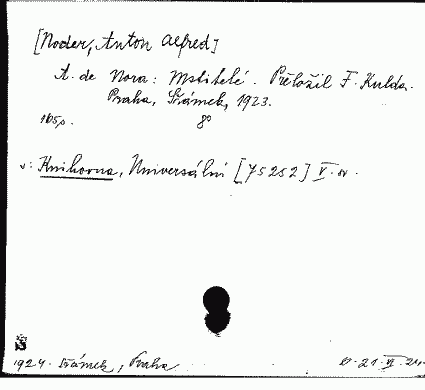 [Noder, Anton Alfred]
A. de Nora: Mstitelé. Přeložil F. Kulda.
Praha, Šrámek, 1923.
165 s. 8°
v: Knihovna, Universální [75252] V. sv.
1924. Šrámek, Praha
21. VI. 24.